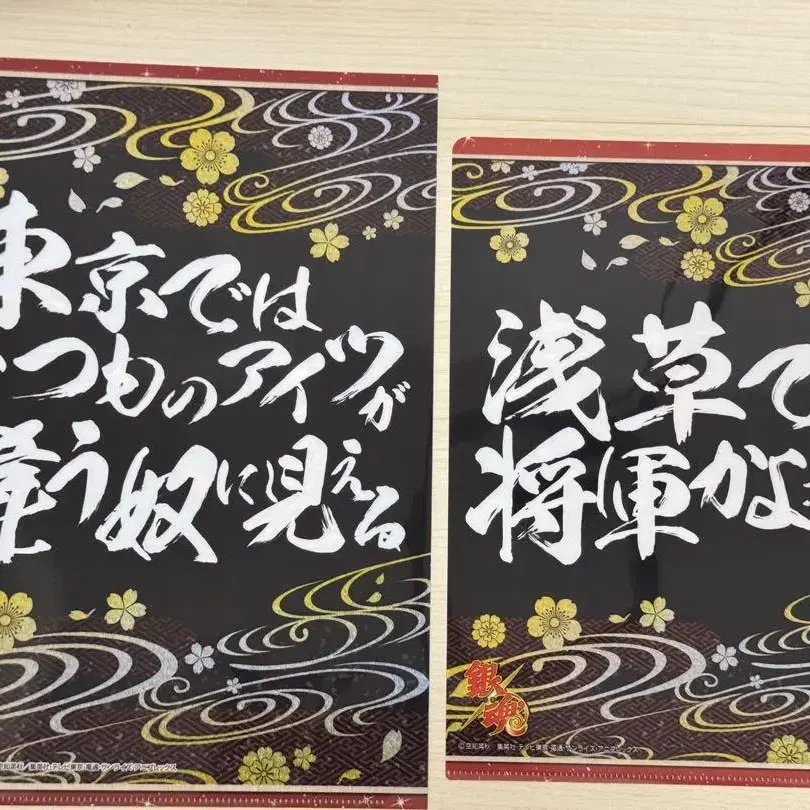 東京では
いつものアイツが
違う奴に見える
空知英秋/集英社・テレビ東京・電通・サンライズ・アニプレックス
浅草で
将軍かよ
銀魂
©空知英秋/集英社・テレビ東京・電通・サンライズ・アニプレックス